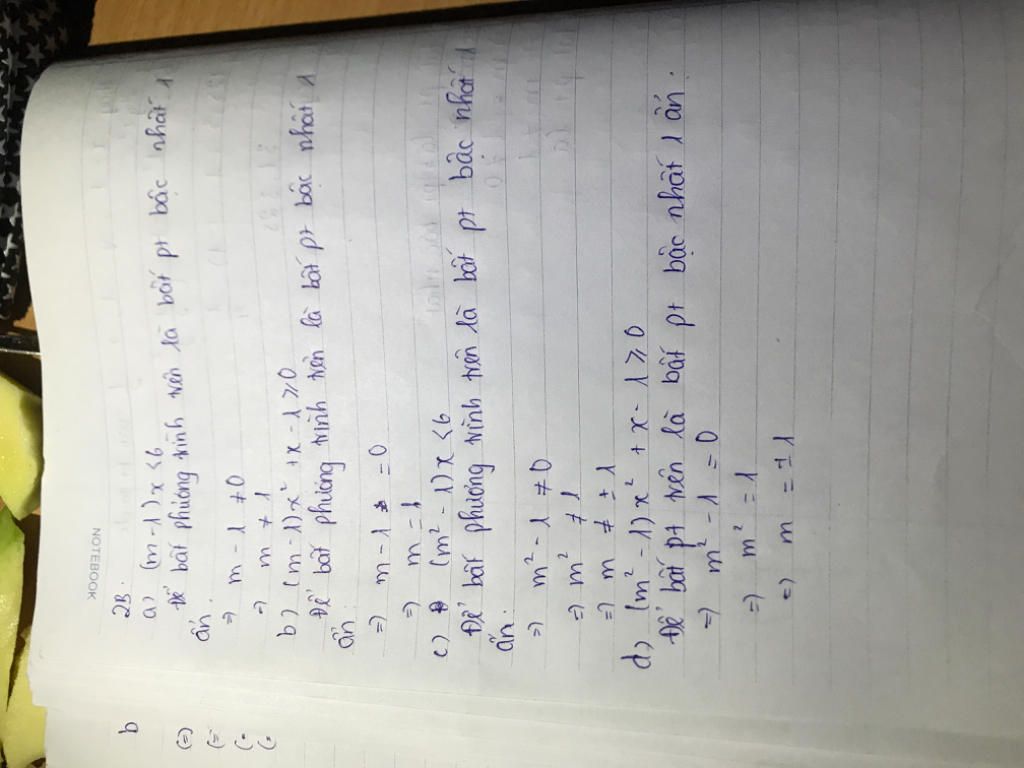 NOTEBOOK
2B.
a) (m - 1) x < 6
Để bất phương trình trên là bất pt bậc nhất 1
ẩn.
=) m - 1 ≠ 0
=) m ≠ 1
b) (m - 1) x² + x - 1 ≥ 0
Để bất phương trình trên là bất pt bậc nhất 1
ẩn.
=) m - 1 = 0
=) m = 1
c) (m² - 1) x < 6
Để bất phương trình trên là bất pt bậc nhất 1
ẩn.
=) m² - 1 ≠ 0
=) m² ≠ 1
=) m ≠ ± 1
d) (m² - 1) x² + x - 1 ≥ 0
Để bất pt trên là bất pt bậc nhất 1 ẩn.
=) m² - 1 = 0
=) m² = 1
=) m = ± 1
b
(=)